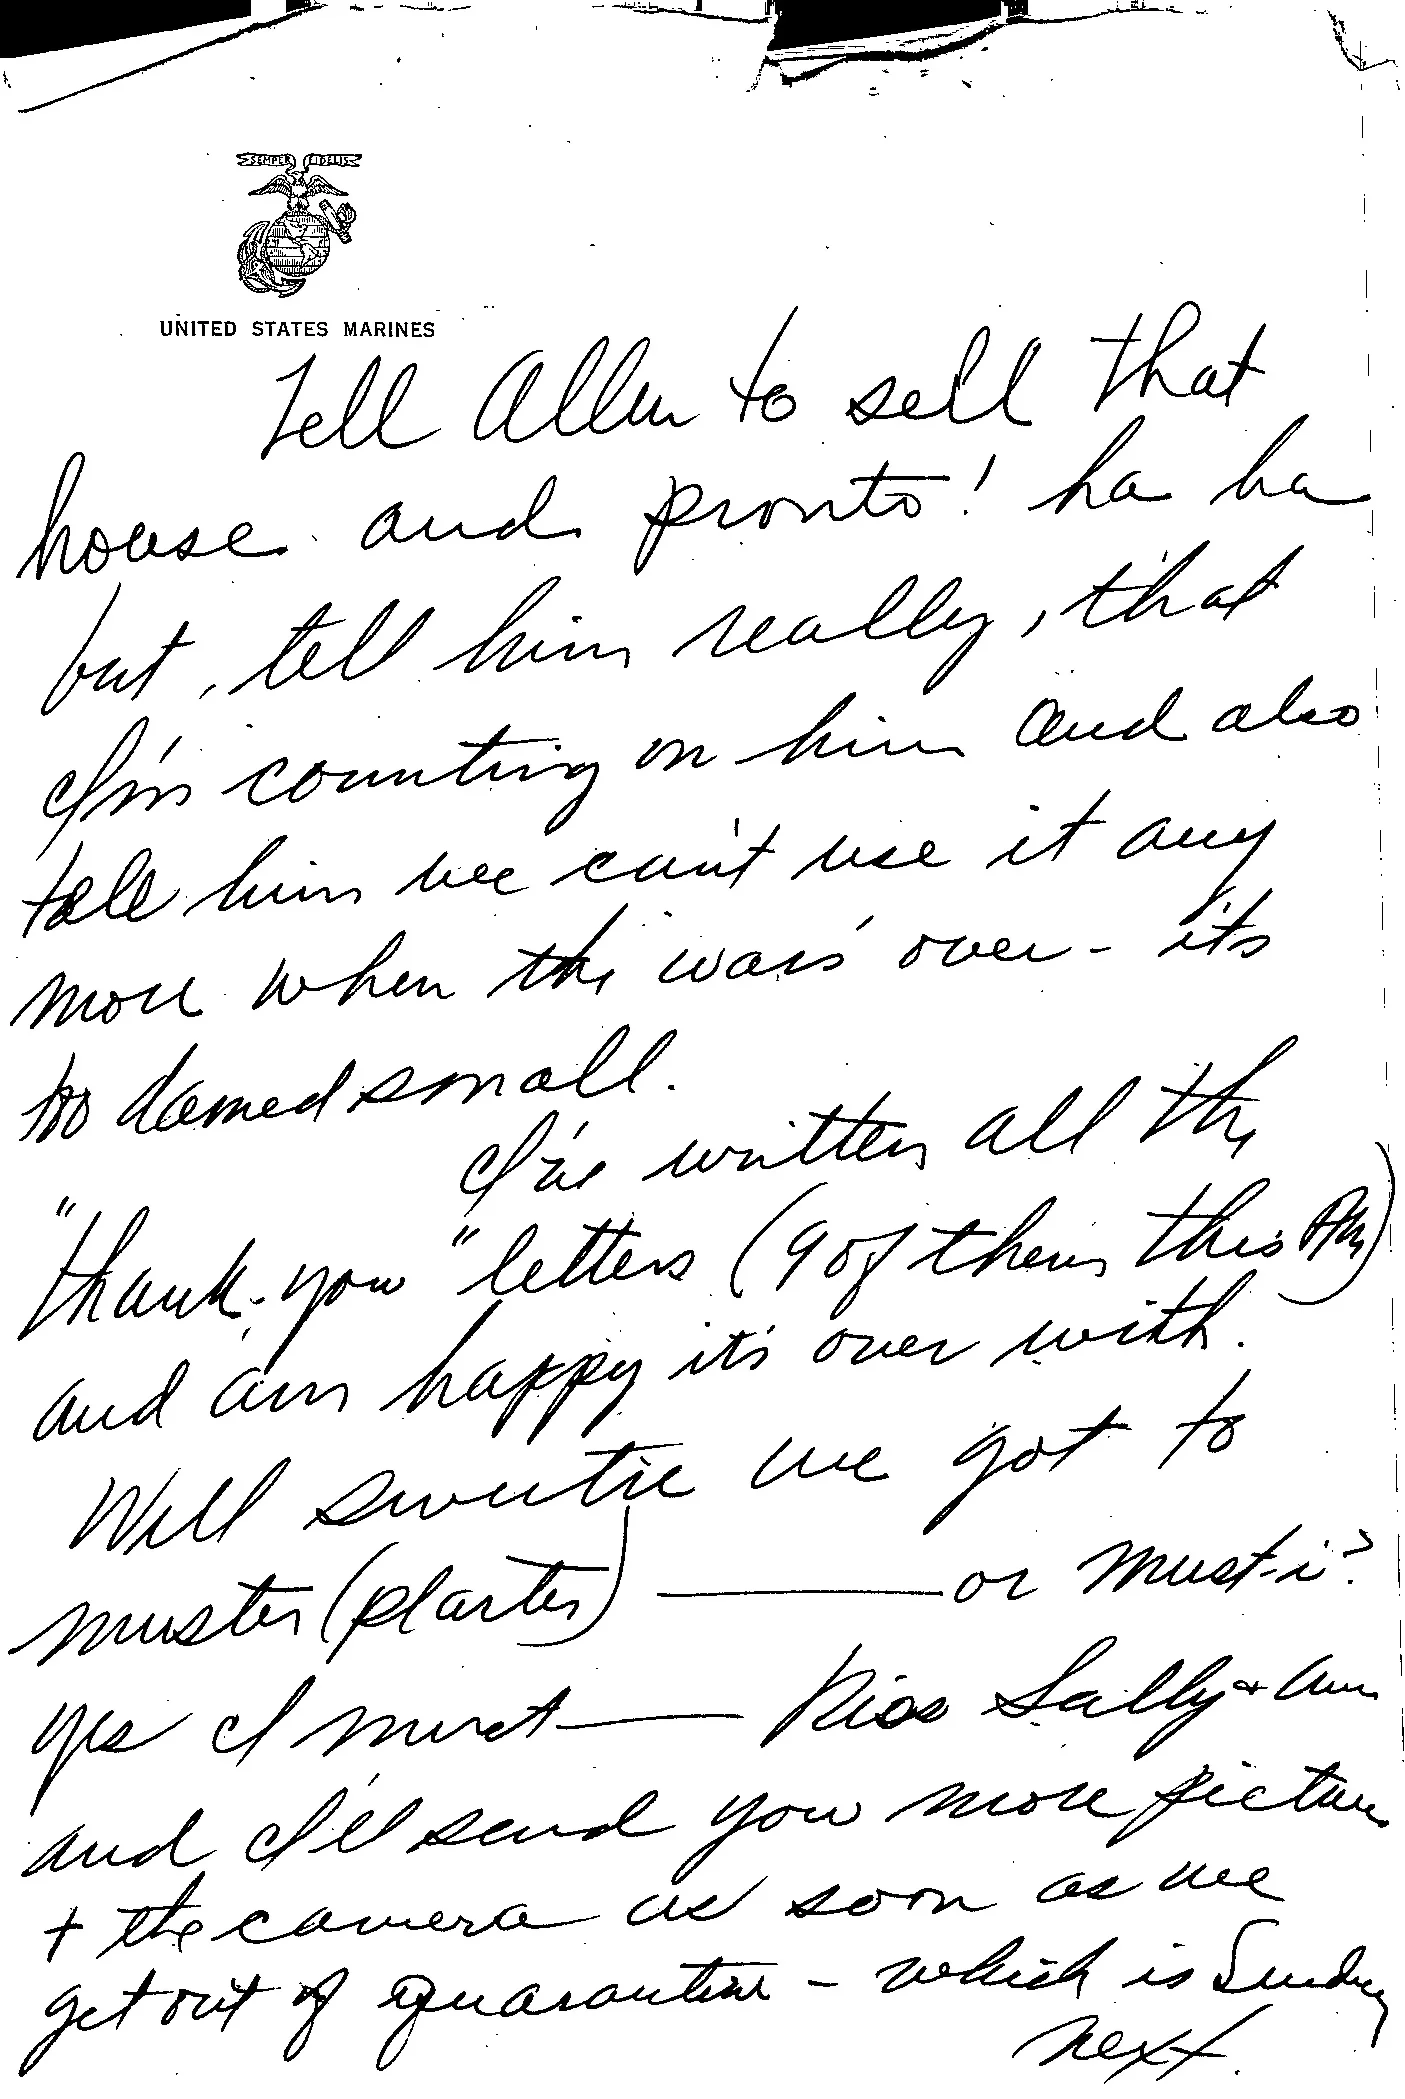 SEMPER FIDELIS
UNITED STATES MARINES
Tell Allen to sell that
house and pronto! ha ha
but, tell him really, that
I'm counting on him and also
tell him we can't use it any
more when the war's over - it's
too damed small.
I've written all the
"thank-you" letters (9 of them this PM)
and am happy it's over with.
Well sweetie we got to
muster (plaster) — or must-i?
yes I must — Kiss Sally + Ann
and I'll send you more pictures
+ the camera as soon as we
get out of quarantine - which is Sunday
next.